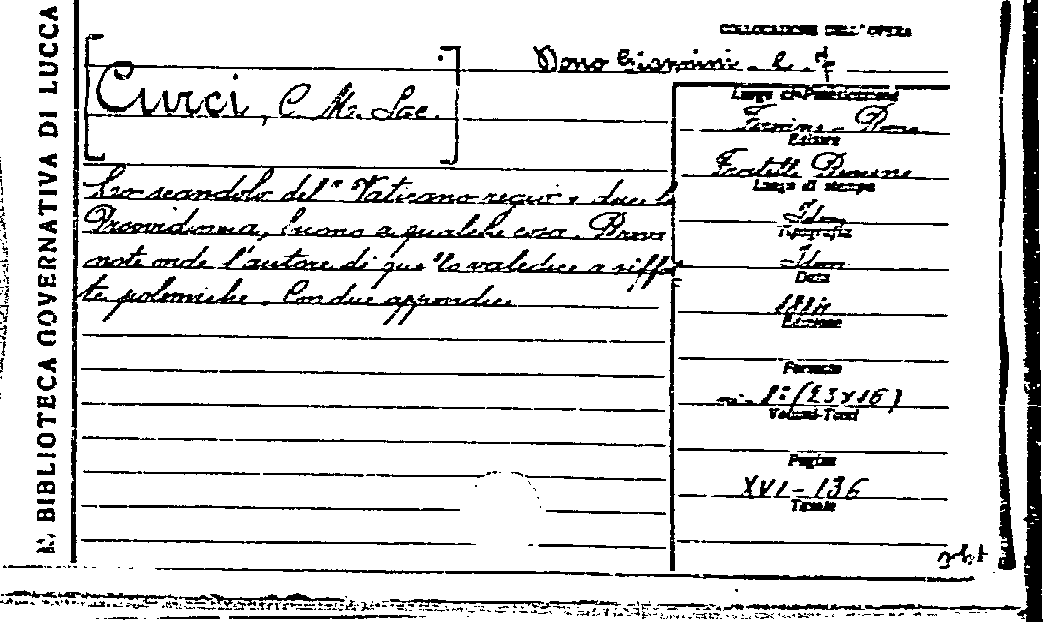 R. BIBLIOTECA GOVERNATIVA DI LUCCA
COLLOCAZIONE DELL'OPERA
Dono Giannini - 2.
Curci, C. M. Sac.
Lo scandalo del "Vaticano regio", duce la
Provvidenza, buono a qualche cosa. Brevi
note onde l'autore di quello valedice a siffat
te polemiche. Con due appendici
Luogo di Pubblicazione
Torino - Roma
Editore
Fratelli
Luogo di stampa
Idem
Tipografia
Idem
Data
1884
Edizione
Formato
in - 8º (23x16)
Volumi-Tomi
Pagine
XVI - 136
Tavole